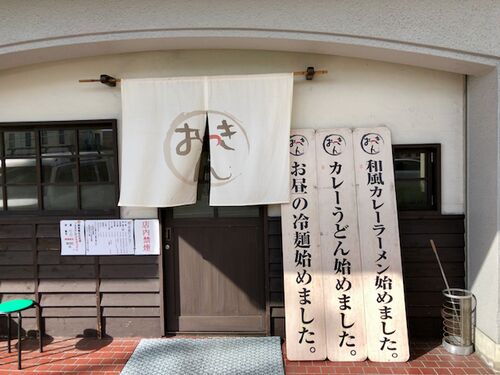 おっきん
店内禁煙
おっきん
和風カレーラーメン始めました。
おっきん
カレーうどん始めました。
おっきん
お昼の冷麺始めました。